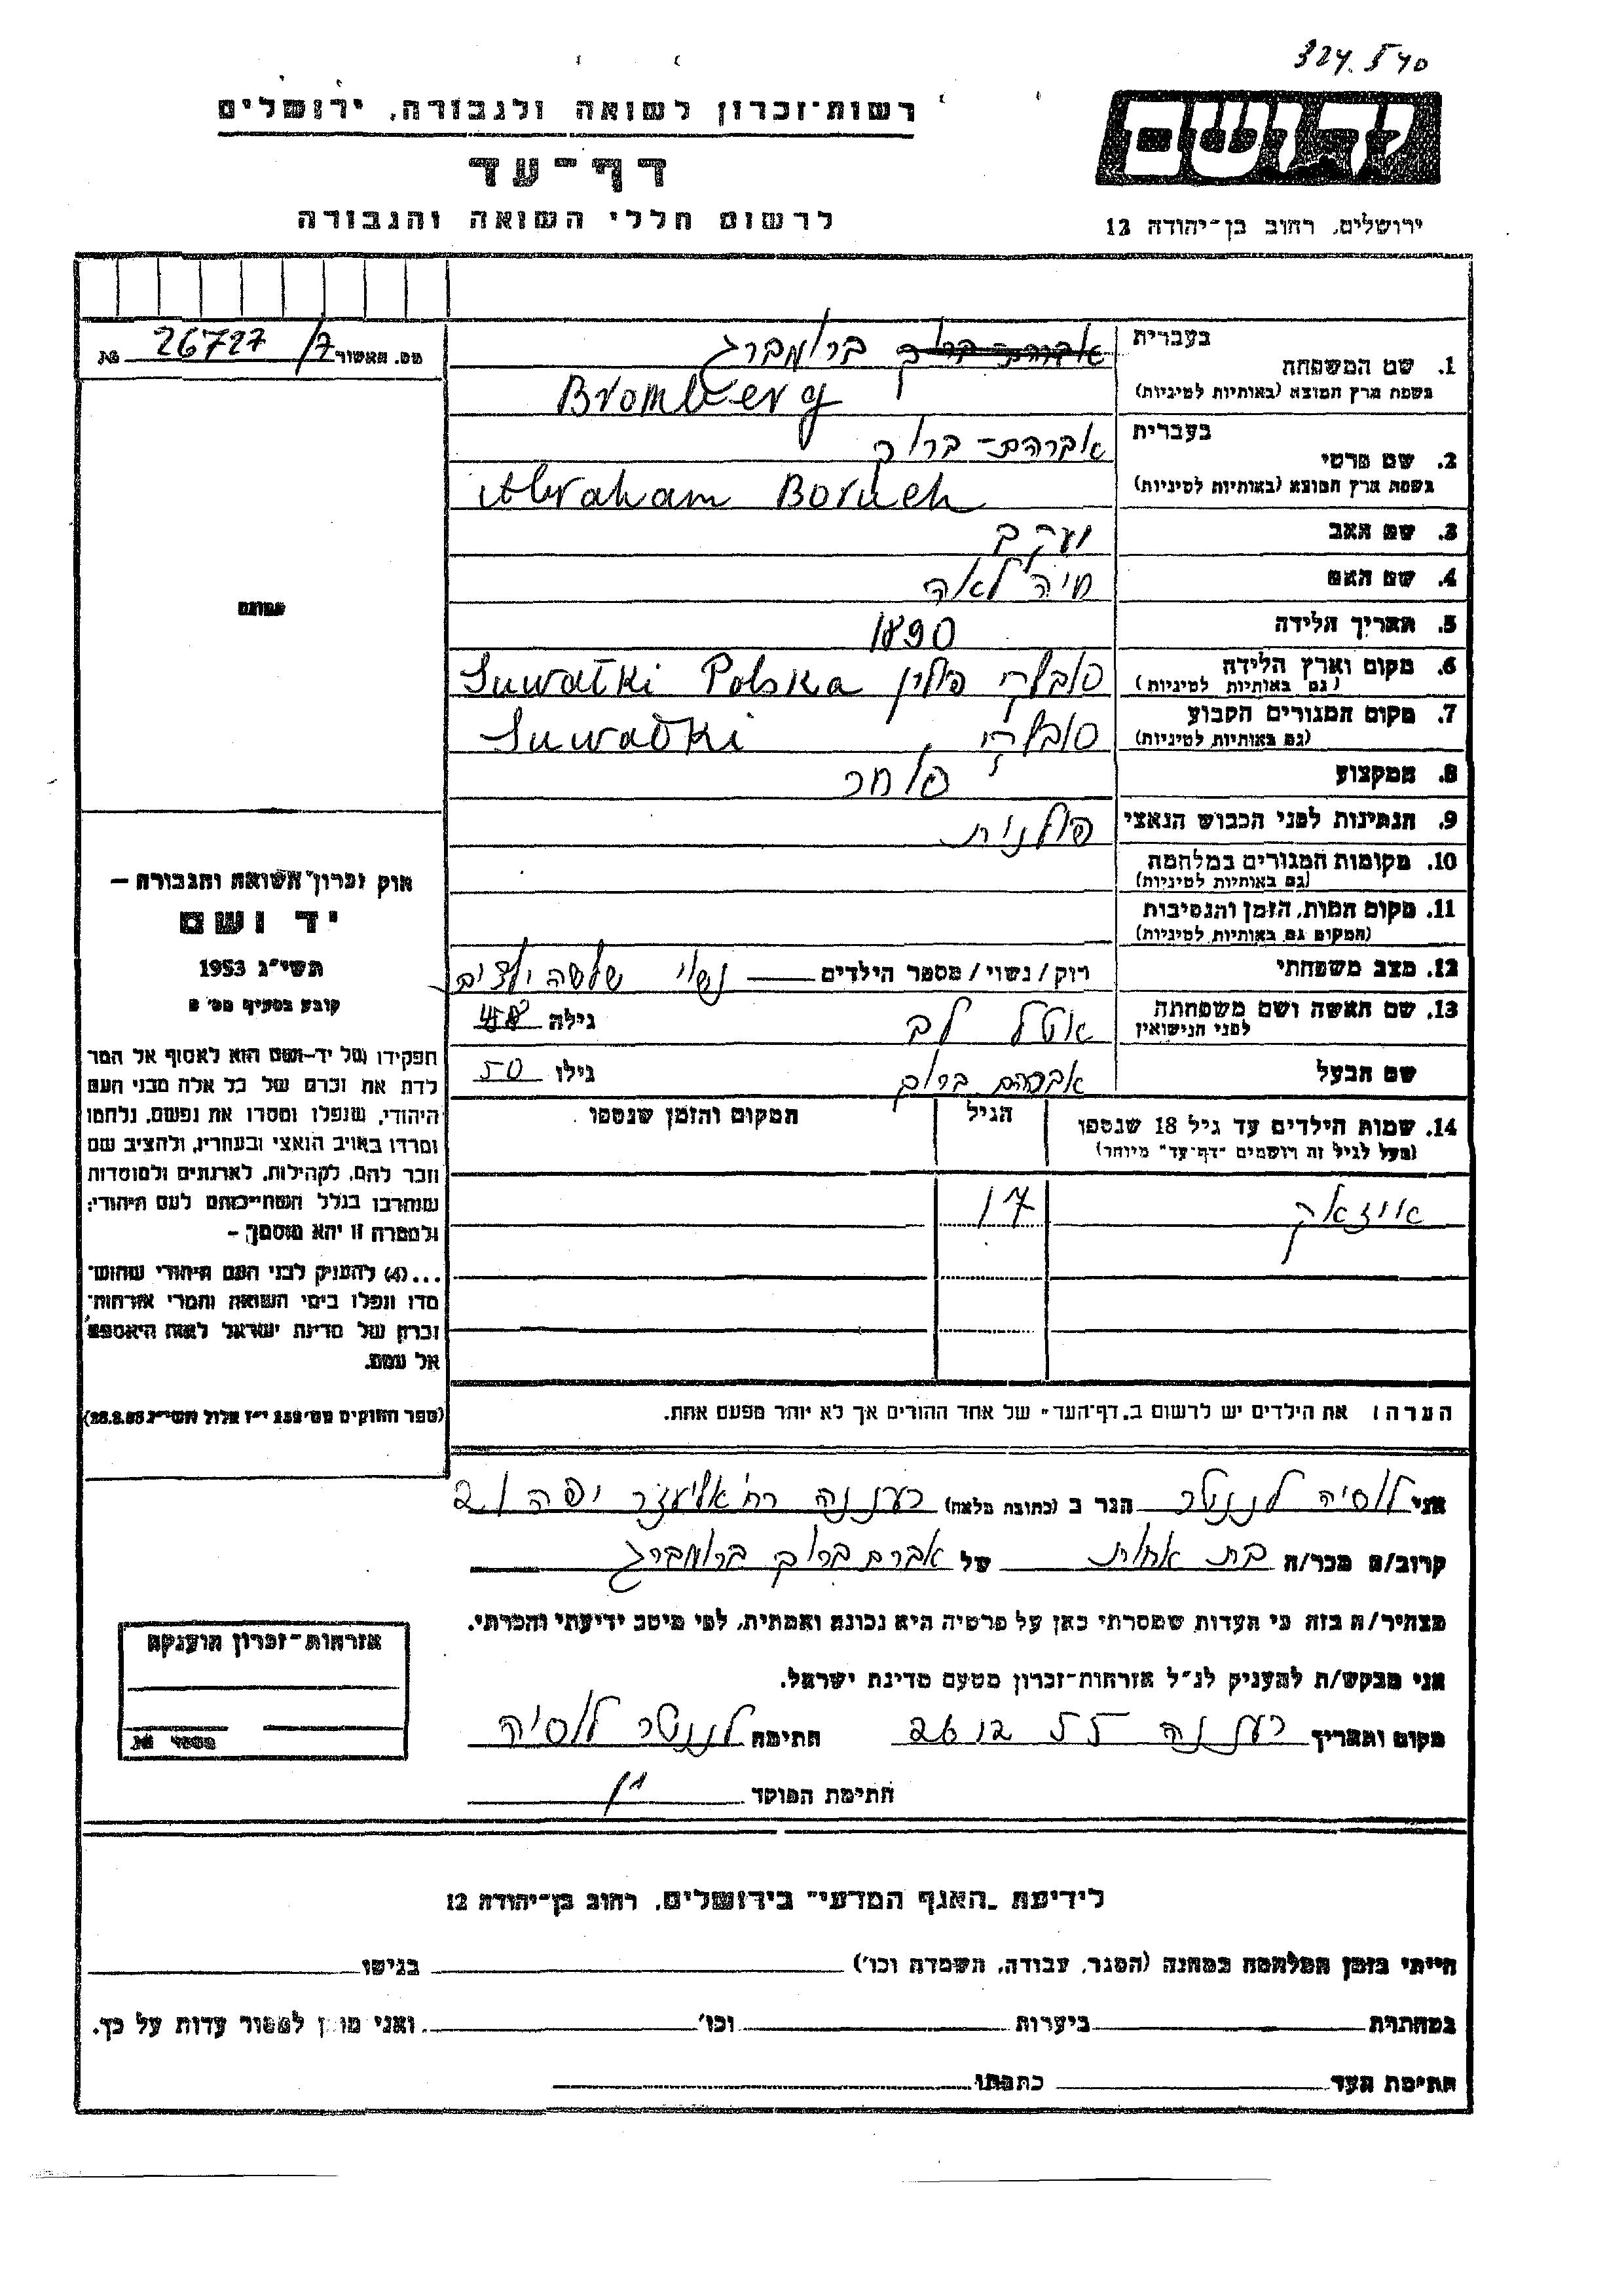 324.540
רשות־זכרון לשואה ולגבורה, ירושלים
יד ושם
דף־עד
לרשום חללי השואה והגבורה
ירושלים, רחוב בן־יהודה 12
מס. האשור 26727/7 №
בעברית
1. שם המשפחה ברומברג
בשפת ארץ המוצא (באותיות לטיניות) Bromberg
בעברית אברהם־ברוך
2. שם פרטי
בשפת ארץ המוצא (באותיות לטיניות) Abraham Boruch
3. שם האב יעקב
4. שם האם חיה לאה
5. תאריך הלידה 1890
6. מקום וארץ הלידה סובלקי פולין Suwałki Polska
(גם באותיות לטיניות)
7. מקום המגורים הקבוע סובלקי Suwałki
(גם באותיות לטיניות)
8. המקצוע סוחר
9. הנתינות לפני הכבוש הנאצי פולנית
10. מקומות המגורים במלחמה
(גם באותיות לטיניות)
11. מקום המות, הזמן והנסיבות
(המקום גם באותיות לטיניות)
12. מצב משפחתי רוק/נשוי/מספר הילדים נשוי שלשה ילדים
13. שם האשה ושם משפחתה גילה 48
לפני הנישואין
שם הבעל אברהם ברוך גילו 50
14. שמות הילדים עד גיל 18 שנספו הגיל המקום והזמן שנספו
(מעל לגיל זה רושמים "דף־עד" מיוחד)
אייזאק 17
הערה: את הילדים יש לרשום ב"דף־העד" של אחד ההורים אך לא יותר מפעם אחת.
תמונה
חוק זכרון השואה והגבורה —
יד ושם
תשי״ג 1953
קובע בסעיף מס׳ 2
תפקידו של יד־ושם הוא לאסוף אל המו־
לדת את זכרם של כל אלה מבני העם
היהודי, שנפלו ומסרו את נפשם, נלחמו
ומרדו באויב הנאצי ובעוזריו, ולהציב שם
וזכר להם, לקהילות, לארגונים ולמוסדות
שנחרבו בגלל השתייכותם לעם היהודי;
ולמטרה זו יהא מוסמך —
...(4) להעניק לבני העם היהודי שהוש־
מדו ונפלו בימי השואה והמרי אזרחות־
זכרון של מדינת ישראל לאות היאספם
אל עמם.
(ספר החוקים מס׳ 132 י״ז אלול תשי״ג 28.8.53)
אני לוסיה לנגטר הגר ב (כתובת מלאה) רעננה רח׳ אליעזר יפה 21
קרוב/ה מכר/ה בת אחות של אברם ברוך ברומברג
מצהיר/ה בזה כי העדות שמסרתי כאן על פרטיה היא נכונה ואמתית, לפי מיטב ידיעתי והכרתי.
אני מבקש/ת להעניק לנ״ל אזרחות־זכרון מטעם מדינת ישראל.
מקום ותאריך רעננה 26 12 55 חתימה לנגטר לוסיה
חתימת הפוקד
אזרחות־זכרון הוענקה
מספר №
לידיעת "האגף המדעי" בירושלים, רחוב בן־יהודה 12
הייתי בזמן המלחמה במחנה (הסגר, עבודה, השמדה וכו׳) בגיטו
במחתרת ביערות וכו׳ ואני מוכן למסור עדות על כך.
חתימת העד כתבתו